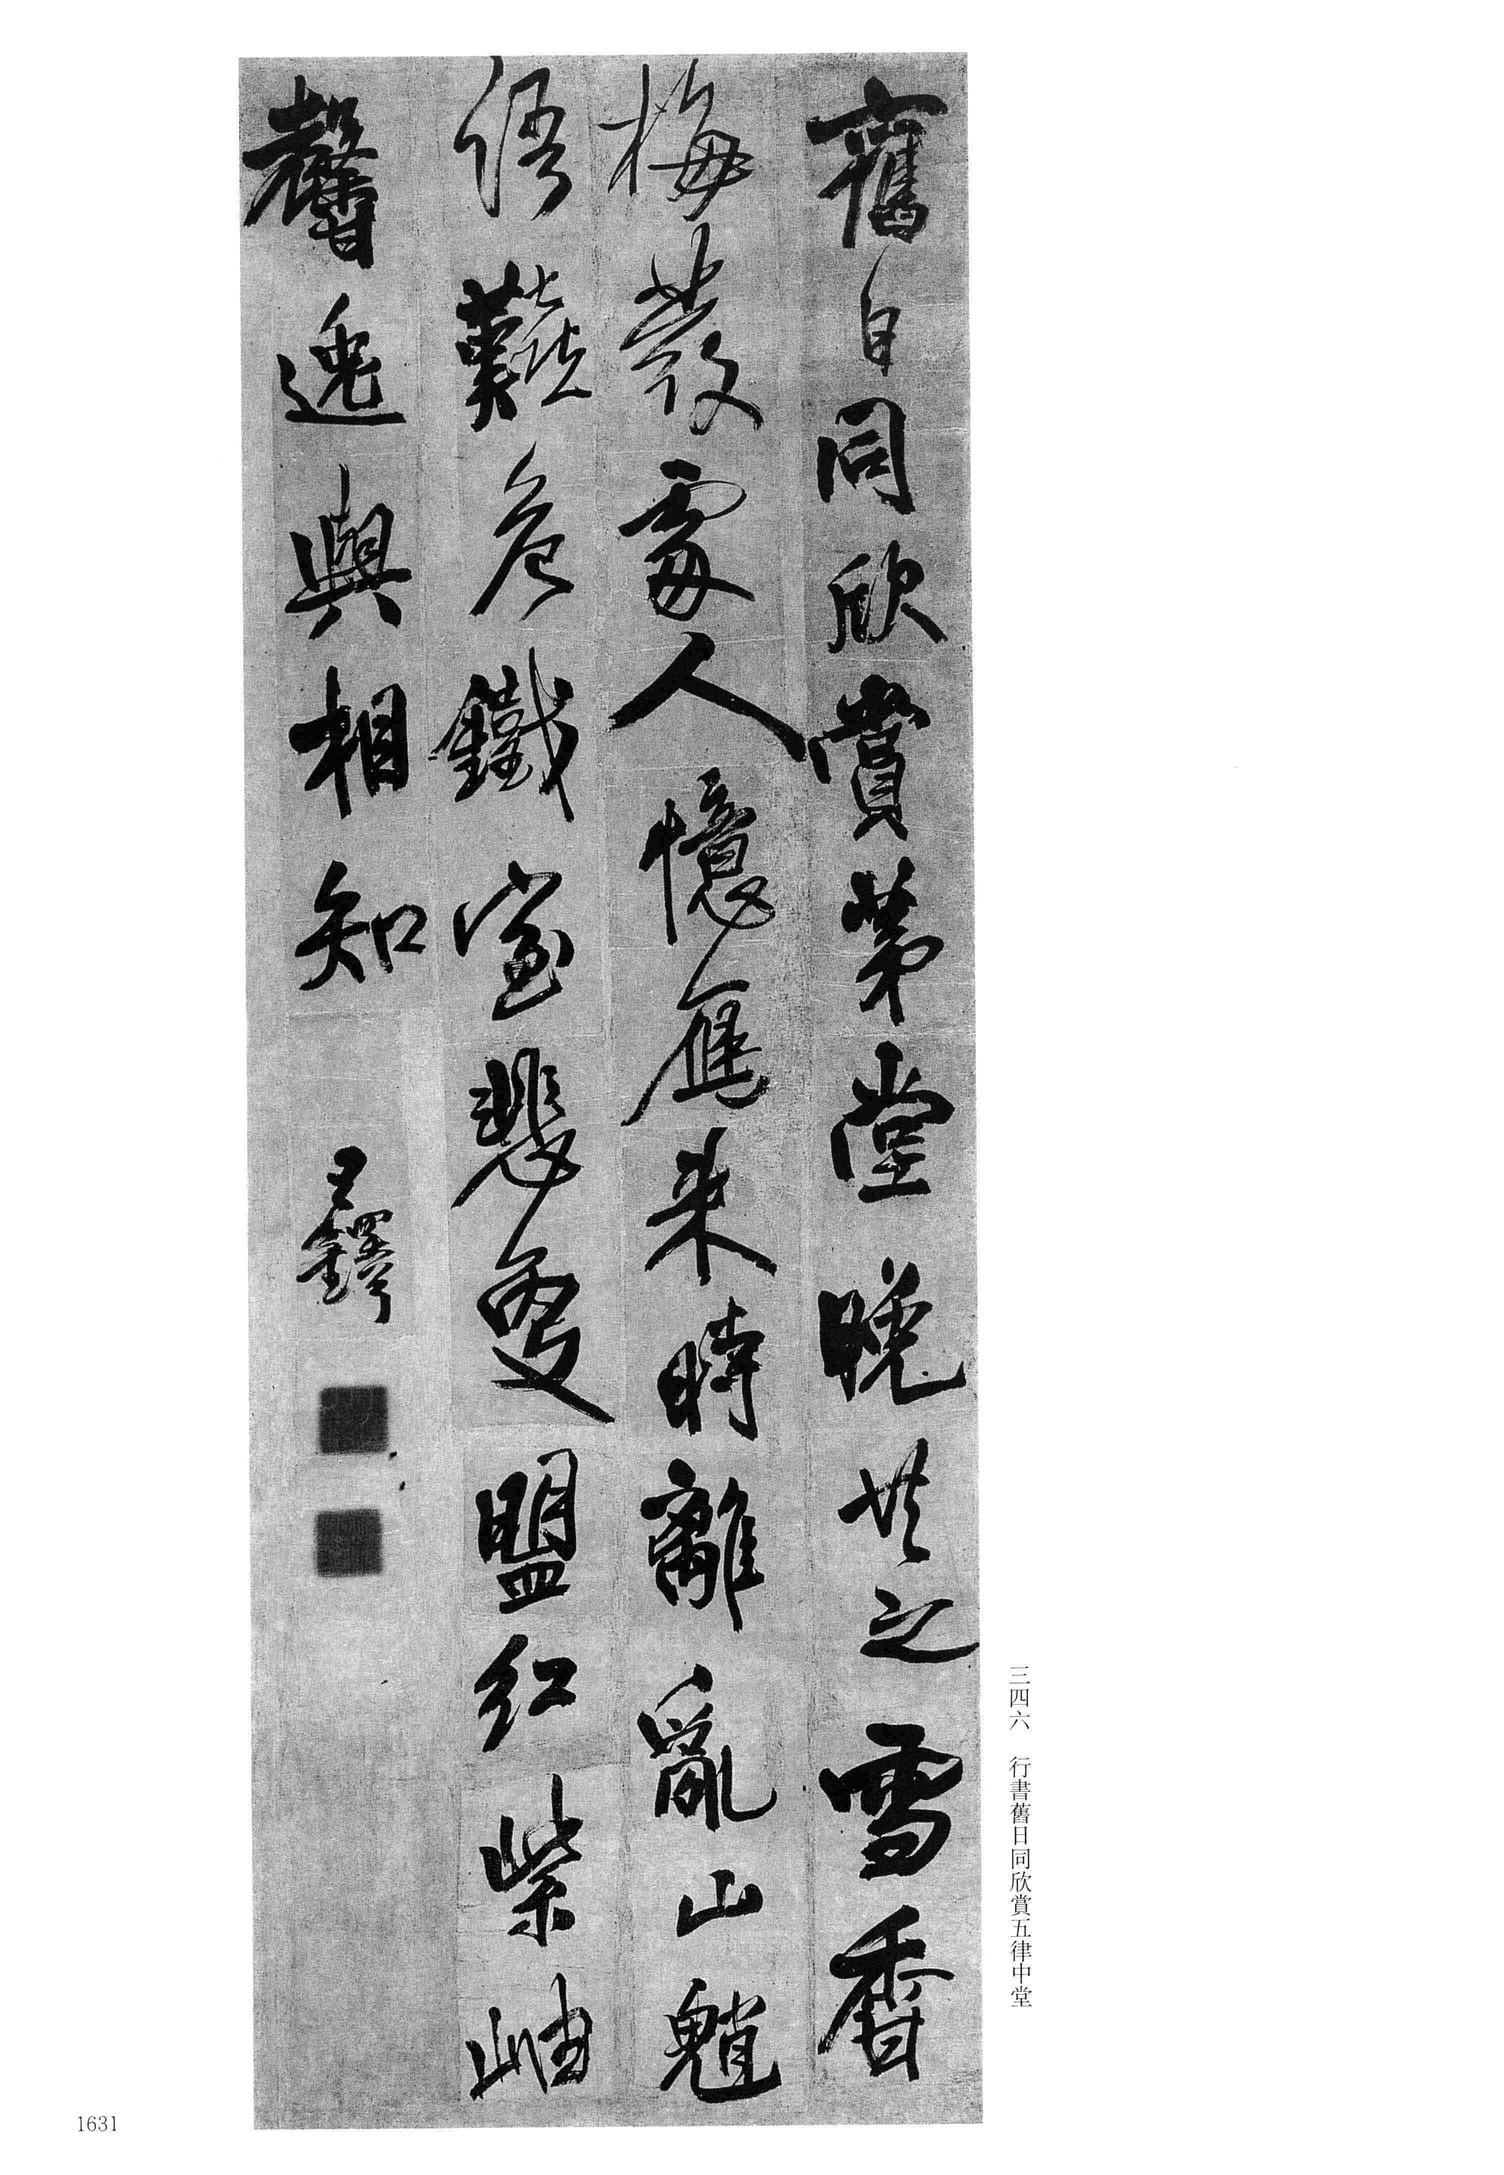 舊日同欣賞茅堂晚共之雪香
梅發處人憶雁來時離亂山魈
語艱危鐵室悲更盟紅紫岫
馨逸與相知
王鐸
三四六 行書舊日同欣賞五律中堂
1631